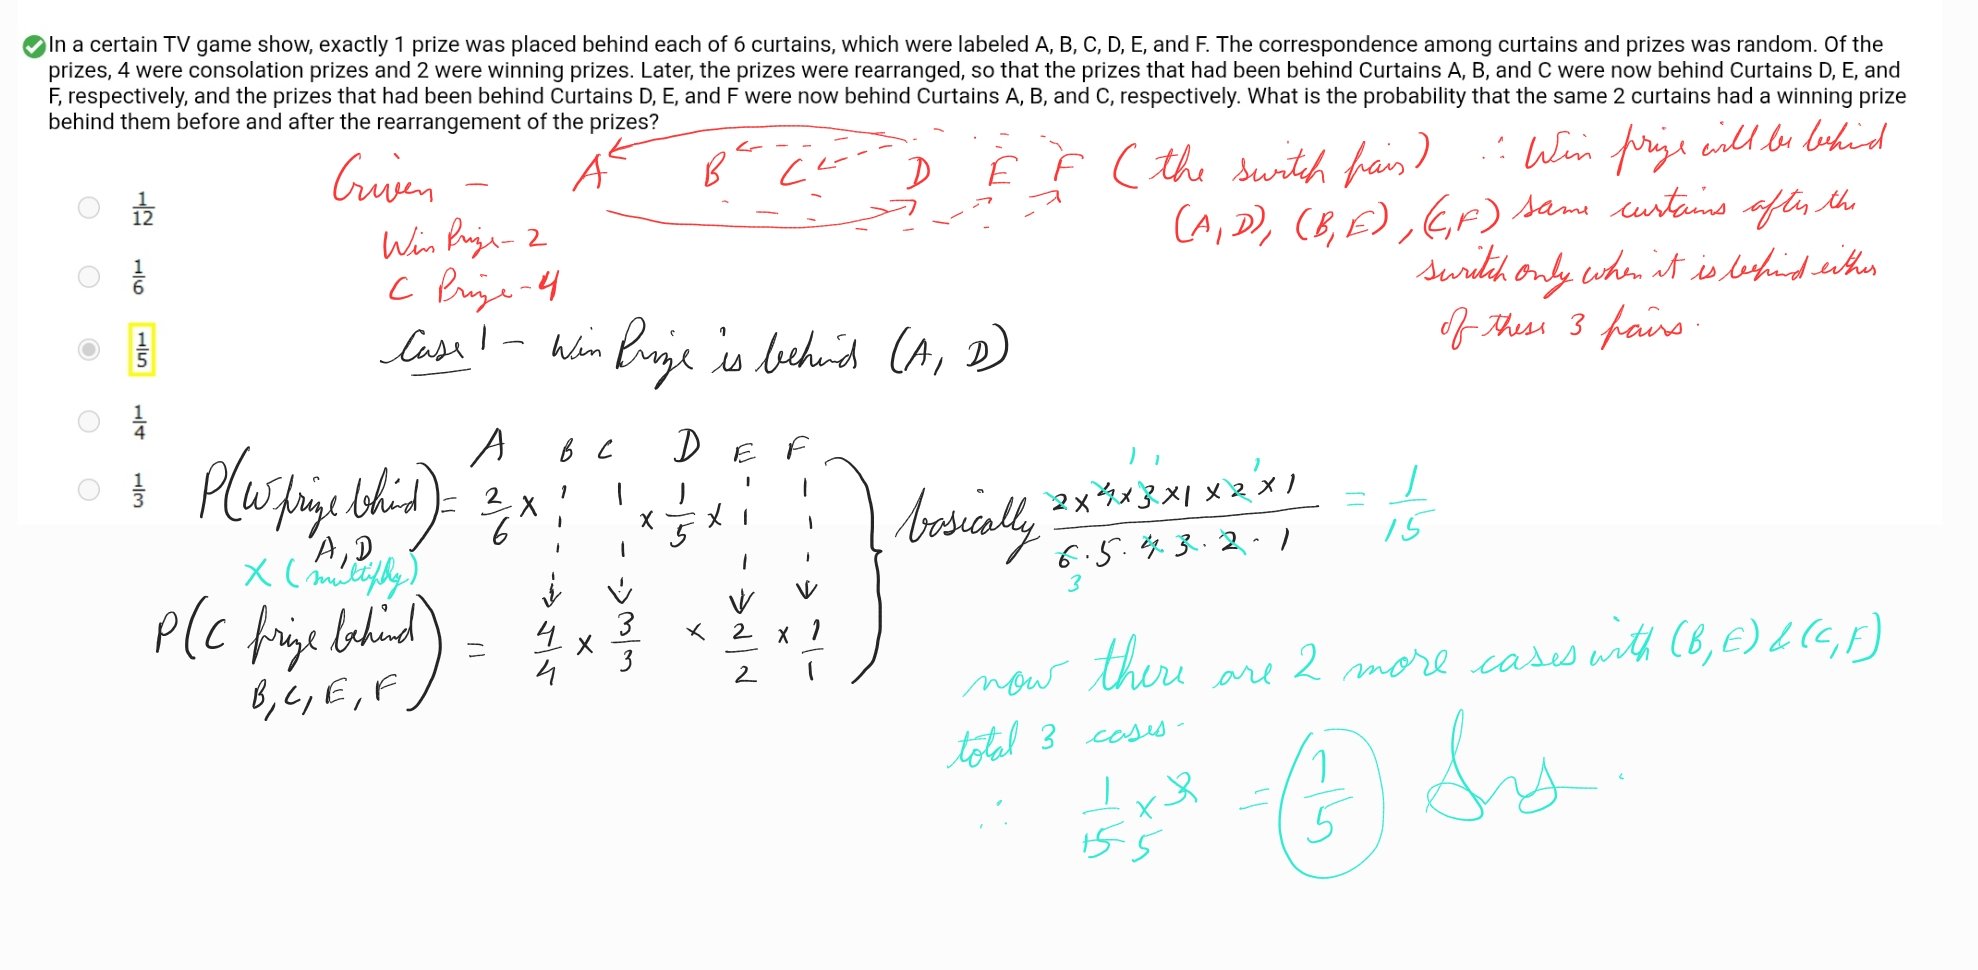 In a certain TV game show, exactly 1 prize was placed behind each of 6 curtains, which were labeled A, B, C, D, E, and F. The correspondence among curtains and prizes was random. Of the
prizes, 4 were consolation prizes and 2 were winning prizes. Later, the prizes were rearranged, so that the prizes that had been behind Curtains A, B, and C were now behind Curtains D, E, and
F, respectively, and the prizes that had been behind Curtains D, E, and F were now behind Curtains A, B, and C, respectively. What is the probability that the same 2 curtains had a winning prize
behind them before and after the rearrangement of the prizes?
1/12
1/6
1/5
1/4
1/3
Given - A B C D E F (the switch pairs) ∴ Win prize will be behind
(A, D), (B, E), (C, F) same curtains after the
switch only when it is behind either
of these 3 pairs.
Win Prize - 2
C Prize - 4
Case 1 - Win Prize is behind (A, D)
A B C D E F
P(W prize bhind) = 2/6 × × 1/5 ×
A, D
× (multiply)
P(C prize behind) = 4/4 × 3/3 × 2/2 × 1/1
B, C, E, F
basically 2×4×3×1×2×1 / 6·5·4 3·2·1 = 1/15
3
1 1 1
now there are 2 more cases with (B, E) & (C, F)
total 3 cases.
∴ 1/15 × 3 = 1/5 Ans.
5